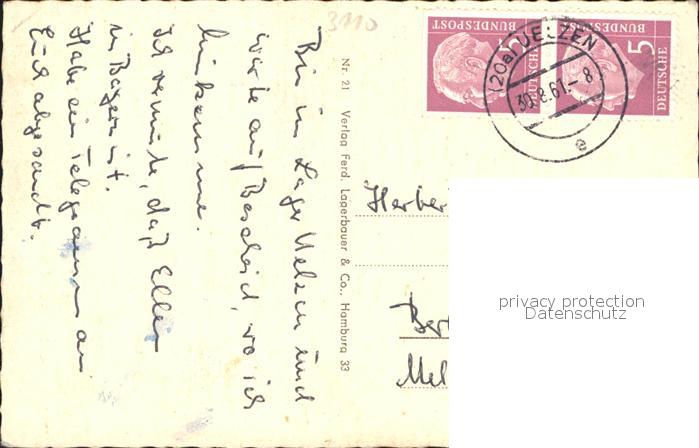 3110
Bin in Lager Uelzen und
warte auf Bescheid, wo ich
hinkomme.
Ich vermute, daß Ellen
in Bayern ist.
Habe ein Telegramm an
Euch abgesandt.
Nr. 21 Verlag Ferd. Lagerbauer & Co., Hamburg 33
DEUTSCHE
BUNDESPOST
5
DEUTSCHE
BUNDESPOST
5
(20a) UELZEN
30.8.61.-8
e
Herber
Mel
privacy protection
Datenschutz